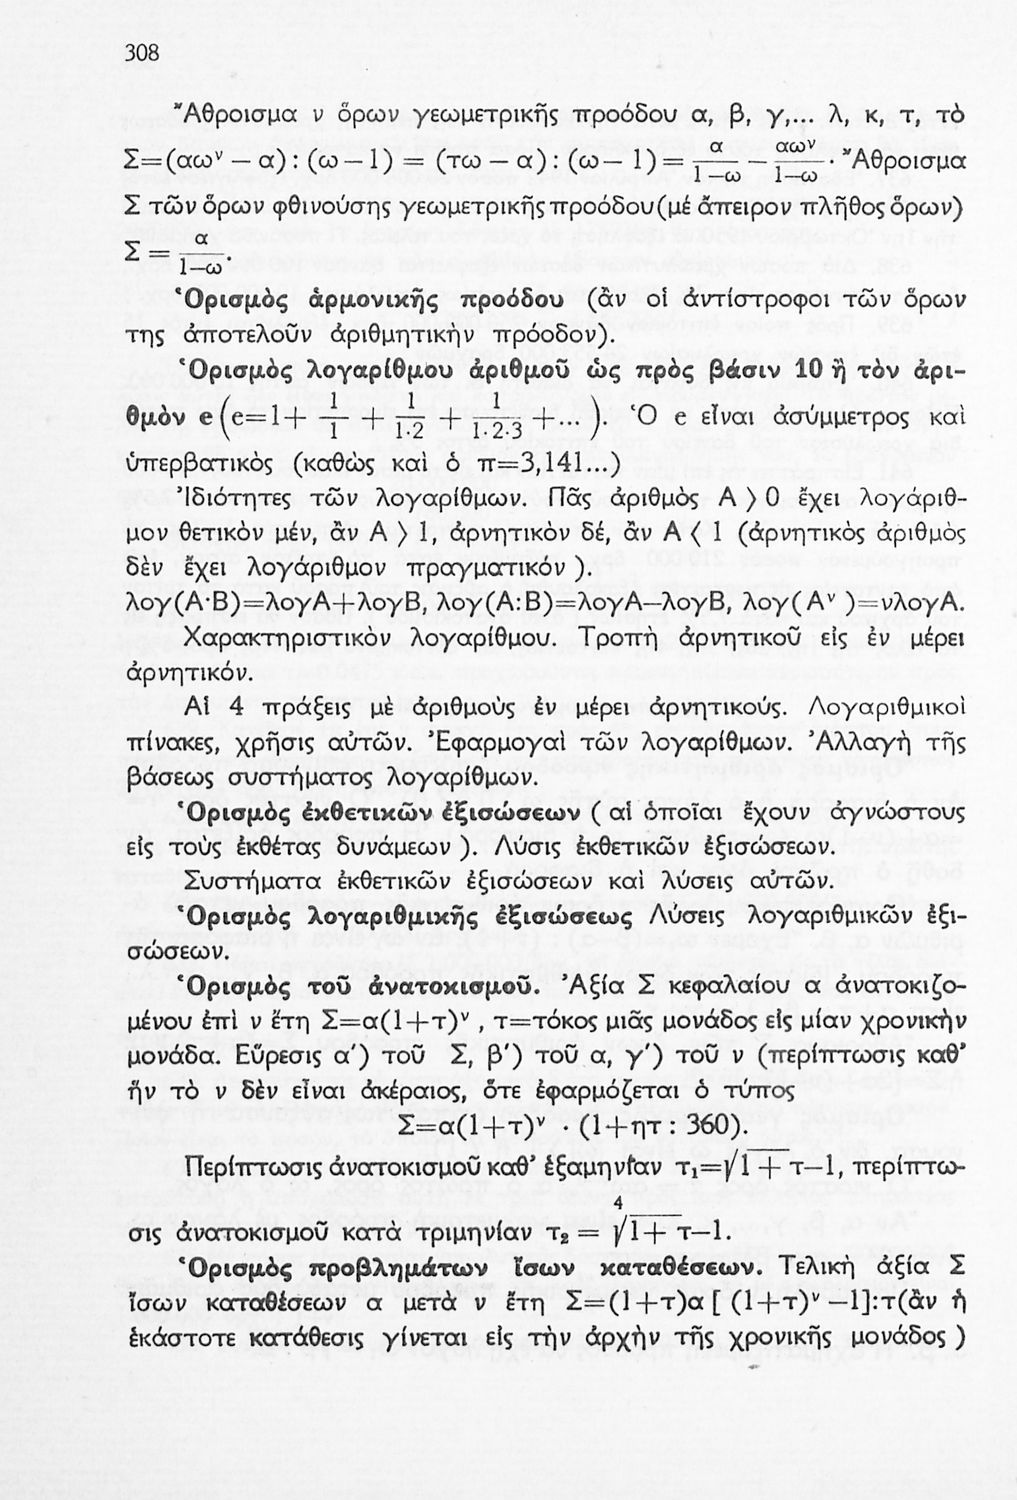 308
Ἄθροισμα ν ὅρων γεωμετρικῆς προόδου α, β, γ,... λ, κ, τ, τὸ
Σ=(αωᵛ — α) : (ω — 1) = (τω — α) : (ω— 1) = α/(1—ω) — αωᵛ/(1—ω) · Ἄθροισμα
Σ τῶν ὅρων φθινούσης γεωμετρικῆς προόδου (μέ ἄπειρον πλῆθος ὅρων)
Σ = α/(1—ω).
Ὁρισμὸς ἁρμονικῆς προόδου (ἂν οἱ ἀντίστροφοι τῶν ὅρων
της ἀποτελοῦν ἀριθμητικὴν πρόοδον).
Ὁρισμὸς λογαρίθμου ἀριθμοῦ ὡς πρὸς βάσιν 10 ἢ τὸν ἀρι-
θμὸν e (e=1+ 1/1 + 1/1·2 + 1/1·2·3 +... ). Ὁ e εἶναι ἀσύμμετρος καὶ
ὑπερβατικὸς (καθὼς καὶ ὁ π=3,141...)
Ἰδιότητες τῶν λογαρίθμων. Πᾶς ἀριθμὸς Α ⟩ 0 ἔχει λογάριθ-
μον θετικὸν μέν, ἂν Α ⟩ 1, ἀρνητικὸν δέ, ἂν Α ⟨ 1 (ἀρνητικὸς ἀριθμὸς
δὲν ἔχει λογάριθμον πραγματικόν ).
λογ(Α·Β)=λογΑ+λογΒ, λογ(Α:Β)=λογΑ—λογΒ, λογ(Αᵛ )=νλογΑ.
Χαρακτηριστικὸν λογαρίθμου. Τροπὴ ἀρνητικοῦ εἰς ἐν μέρει
ἀρνητικόν.
Αἱ 4 πράξεις μὲ ἀριθμοὺς ἐν μέρει ἀρνητικούς. Λογαριθμικοὶ
πίνακες, χρῆσις αὐτῶν. Ἐφαρμογαὶ τῶν λογαρίθμων. Ἀλλαγὴ τῆς
βάσεως συστήματος λογαρίθμων.
Ὁρισμὸς ἐκθετικῶν ἐξισώσεων ( αἱ ὁποῖαι ἔχουν ἀγνώστους
εἰς τοὺς ἐκθέτας δυνάμεων ). Λύσις ἐκθετικῶν ἐξισώσεων.
Συστήματα ἐκθετικῶν ἐξισώσεων καὶ λύσεις αὐτῶν.
Ὁρισμὸς λογαριθμικῆς ἐξισώσεως Λύσεις λογαριθμικῶν ἐξι-
σώσεων.
Ὁρισμὸς τοῦ ἀνατοκισμοῦ. Ἀξία Σ κεφαλαίου α ἀνατοκιζο-
μένου ἐπὶ ν ἔτη Σ=α(1+τ)ᵛ , τ=τόκος μιᾶς μονάδος εἰς μίαν χρονικὴν
μονάδα. Εὕρεσις α′) τοῦ Σ, β′) τοῦ α, γ′) τοῦ ν (περίπτωσις καθ’
ἣν τὸ ν δὲν εἶναι ἀκέραιος, ὅτε ἐφαρμόζεται ὁ τύπος
Σ=α(1+τ)ᵛ · (1+ητ : 360).
Περίπτωσις ἀνατοκισμοῦ καθ’ ἑξαμηνίαν τ₁=√(1+τ)—1, περίπτω-
σις ἀνατοκισμοῦ κατὰ τριμηνίαν τ₂ = ⁴√(1+τ)—1.
Ὁρισμὸς προβλημάτων ἴσων καταθέσεων. Τελικὴ ἀξία Σ
ἴσων καταθέσεων α μετὰ ν ἔτη Σ=(1+τ)α [ (1+τ)ᵛ —1]:τ(ἂν ἡ
ἑκάστοτε κατάθεσις γίνεται εἰς τὴν ἀρχὴν τῆς χρονικῆς μονάδος )